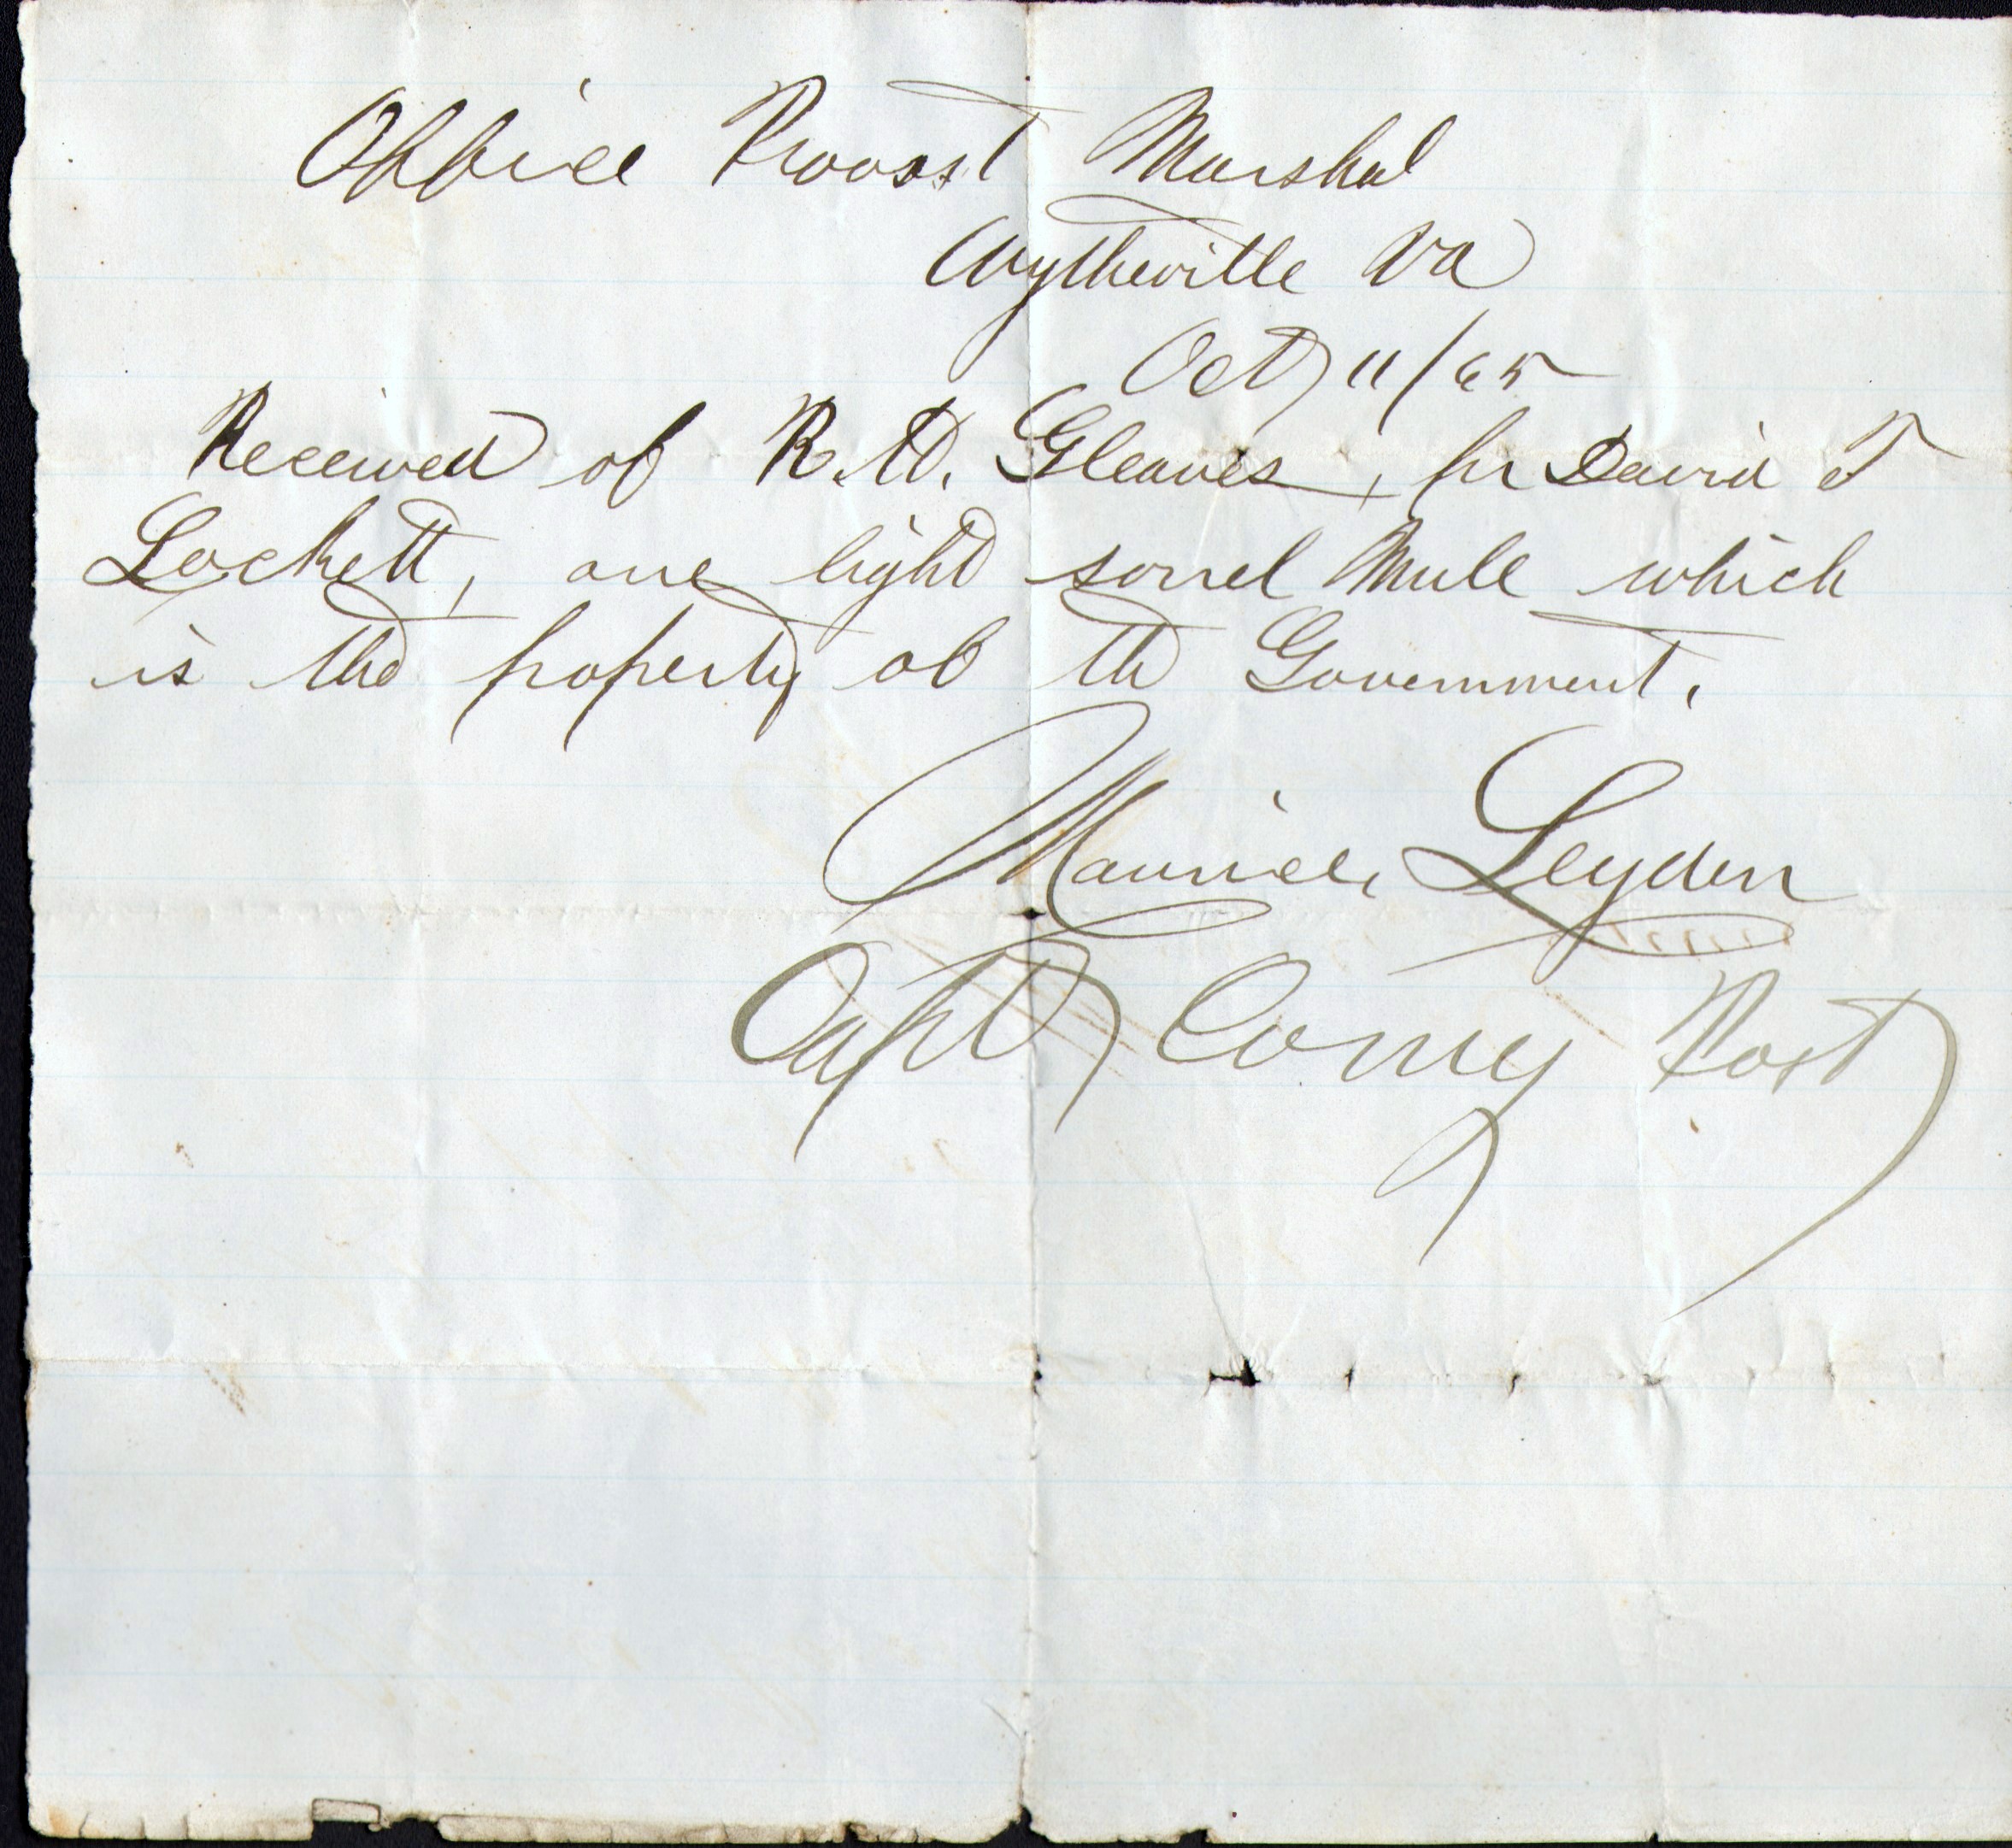 Office Provost Marshal
Wytheville Va
Oct 11/65
Received of R. M. Gleaves, for David T
Lockett, one light sorrel Mule which
is the property of the Government.
Maurice Leyden
Capt Comg Post